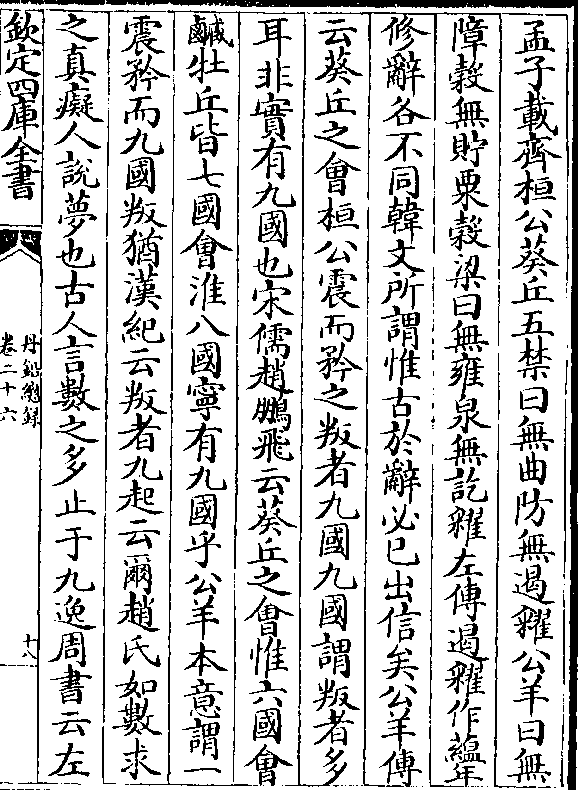 孟子載齊桓公葵丘五禁曰無曲防無遏糴公羊曰無
障榖無貯粟榖梁曰無雍泉無訖糴左傳遏糴作蘊年
修辭各不同韓文所謂惟古於辭必已出信矣公羊傳
云葵丘之會桓公震而矜之叛者九國九國謂叛者多
耳非實有九國也宋儒趙鵬飛云葵丘之會惟六國會
鹹牡丘皆七國會淮八國寧有九國乎公羊本意謂一
震矜而九國叛猶漢紀云叛者九起云爾趙氏如數求
之真癡人說夢也古人言數之多止于九逸周書云左
欽定四庫全書
丹鉛總錄
卷二十六
十八